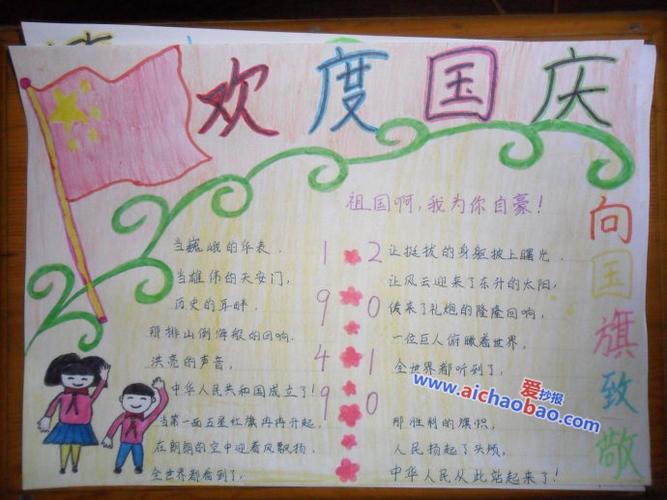 欢度国庆
祖国啊,我为你自豪!
当巍峨的华表,
让挺拔的身躯披上曙光,
当雄伟的天安门,
让风云迎来了东升的太阳,
历史的耳畔,
传来了礼炮的隆隆回响,
那排山倒海般的回响,
一位巨人俯瞰着世界,
洪亮的声音,
全世界都听到了,
中华人民共和国成立了!
当第一面五星红旗冉冉升起,
那胜利的旗帜,
在朗朗的空中迎着风飘扬,
人民扬起了头颅,
全世界都看到了,
中华人民从此站起来了!
1949
2010
向国旗致敬
爱抄报
www.aichaobao.com